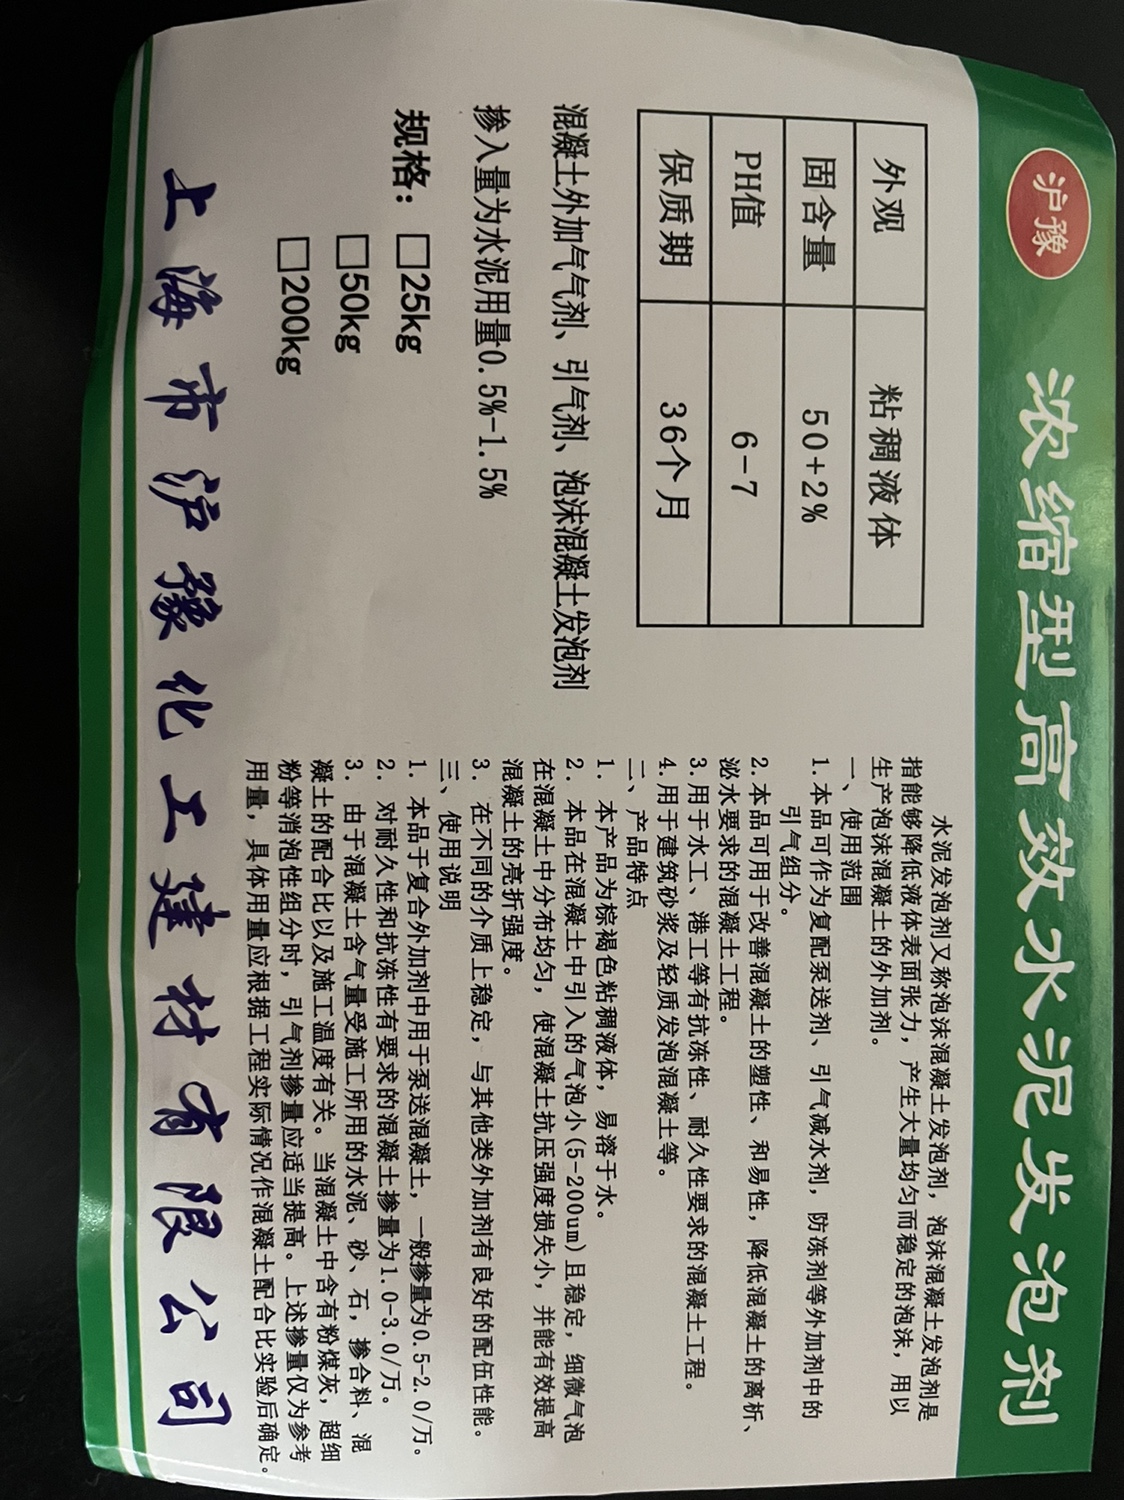 沪豫
浓缩型高效水泥发泡剂
外观 粘稠液体
固含量 50+2%
PH值 6-7
保质期 36个月
混凝土外加气气剂、引气剂、泡沫混凝土发泡剂
掺入量为水泥用量0.5%-1.5%
规格：□25kg
□50kg
□200kg
水泥发泡剂又称泡沫混凝土发泡剂，泡沫混凝土发泡剂是
指能够降低液体表面张力，产生大量均匀而稳定的泡沫，用以
生产泡沫混凝土的外加剂。
一、使用范围
1.本品可作为复配泵送剂、引气减水剂，防冻剂等外加剂中的
引气组分。
2.本品可用于改善混凝土的塑性、和易性，降低混凝土的离析、
泌水要求的混凝土工程。
3.用于水工、港工等有抗冻性、耐久性要求的混凝土工程。
4.用于建筑砂浆及轻质发泡混凝土等。
二、产品特点
1.本产品为棕褐色粘稠液体，易溶于水。
2.本品在混凝土中引入的气泡小(5-200um)且稳定，细微气泡
在混凝土中分布均匀，使混凝土抗压强度损失小，并能有效提高
混凝土的亮折强度。
3.在不同的介质上稳定，与其他类外加剂有良好的配伍性能。
三、使用说明
1.本品于复合外加剂中用于泵送混凝土，一般掺量为0.5-2.0/万。
2.对耐久性和抗冻性有要求的混凝土掺量为1.0-3.0/万。
3.由于混凝土含气量受施工所用的水泥、砂、石，掺合料、混
凝土的配合比以及施工温度有关。当混凝土中含有粉煤灰，超细
粉等消泡性组分时，引气剂掺量应适当提高。上述掺量仅为参考
用量，具体用量应根据工程实际情况作混凝土配合比实验后确定。
上海市沪豫化工建材有限公司